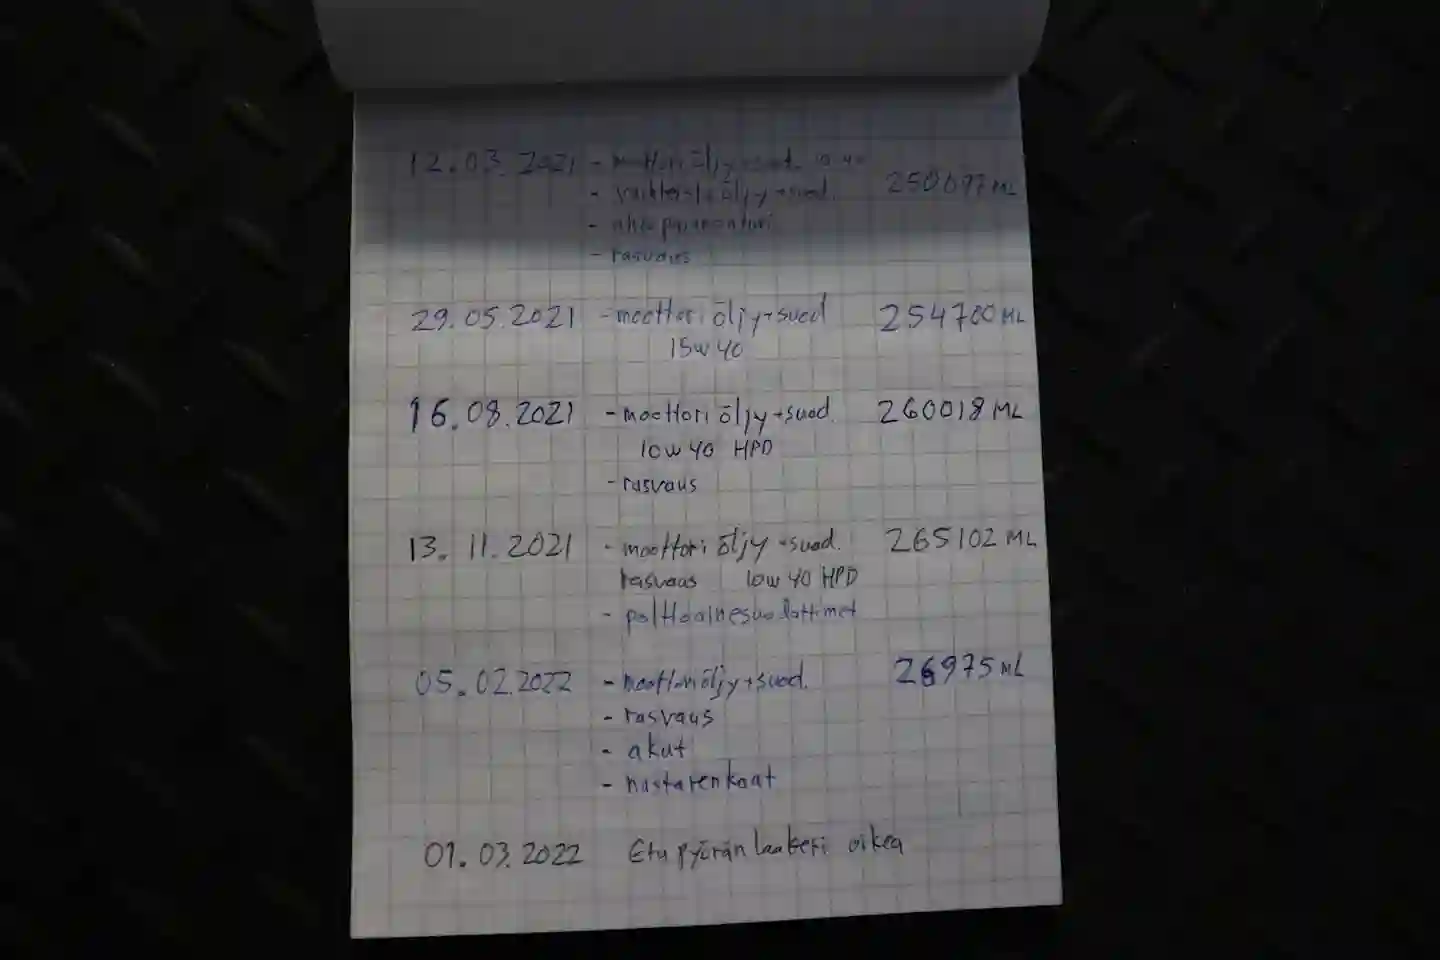 12.03.2021 - moottori öljy+suod. 10w40
- vaihteisto öljy+suod. 250097 ML
- rasvaus
29.05.2021 - moottori öljy+suod 254700 ML
15w40
16.08.2021 - moottori öljy+suod. 260018 ML
10w40 HPD
- rasvaus
13.11.2021 - moottori öljy+suod. 265102 ML
rasvaus 10w40 HPD
- polttoainesuodattimet
05.02.2022 - moottoriöljy+suod. 26975 ML
- rasvaus
- akut
- nastarenkaat
01.03.2022 Etu pyörän laakeri oikea